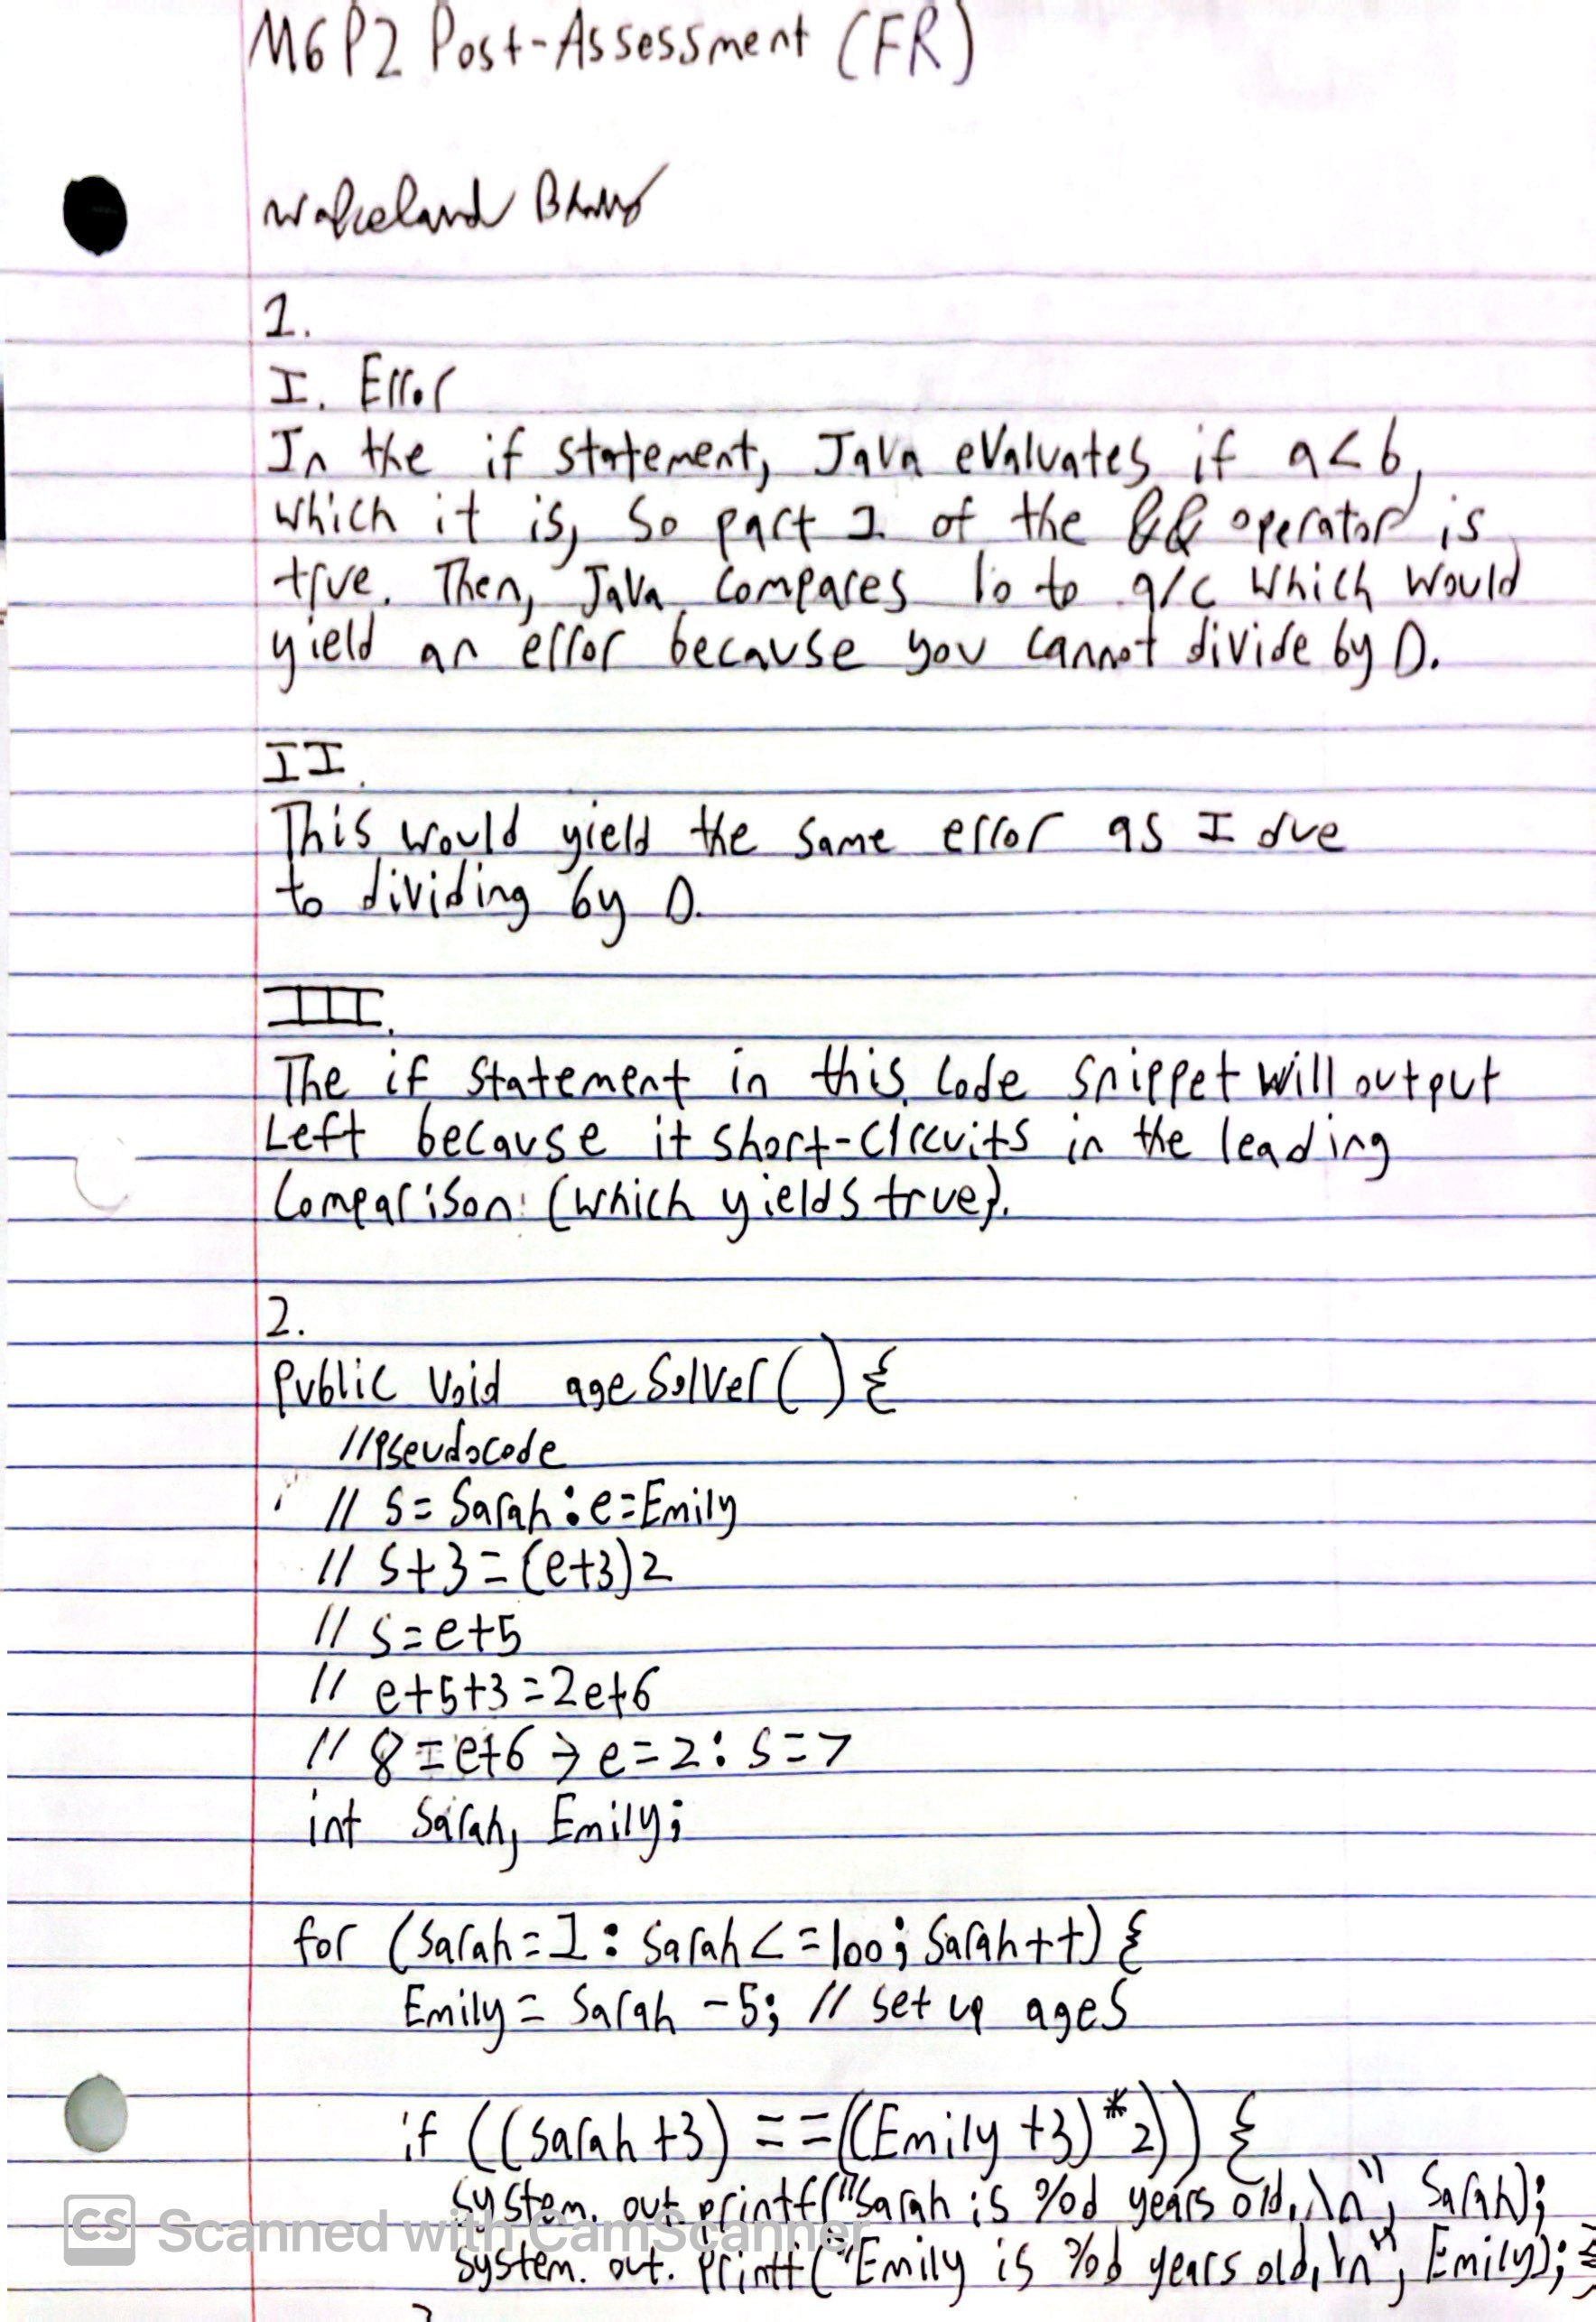 M6P2 Post-Assessment (FR)
Wakeland
1.
I. Error
In the if statement, Java evaluates if a<b,
which it is, so part 1 of the && operator is
true. Then, Java compares 10 to a/c which would
yield an error because you cannot divide by 0.
II.
This would yield the same error as I due
to dividing by 0.
III.
The if statement in this code snippet will output
Left because it short-circuits in the leading
comparison. (which yields true).
2.
public void ageSolver() {
//Pseudocode
// s= Sarah : e=Emily
// s+3=(e+3)2
// s=e+5
// e+5+3=2e+6
// 8=e+6 → e=2: s=7
int Sarah, Emily;
for (Sarah=1: Sarah<=100; Sarah++) {
Emily= Sarah -5; // set up ages
if ((Sarah+3) ==((Emily+3)*2)) {
System.out.printf("Sarah is %d years old.\n", Sarah);
System.out.printf("Emily is %d years old.\n", Emily); }
}
CS Scanned with CamScanner